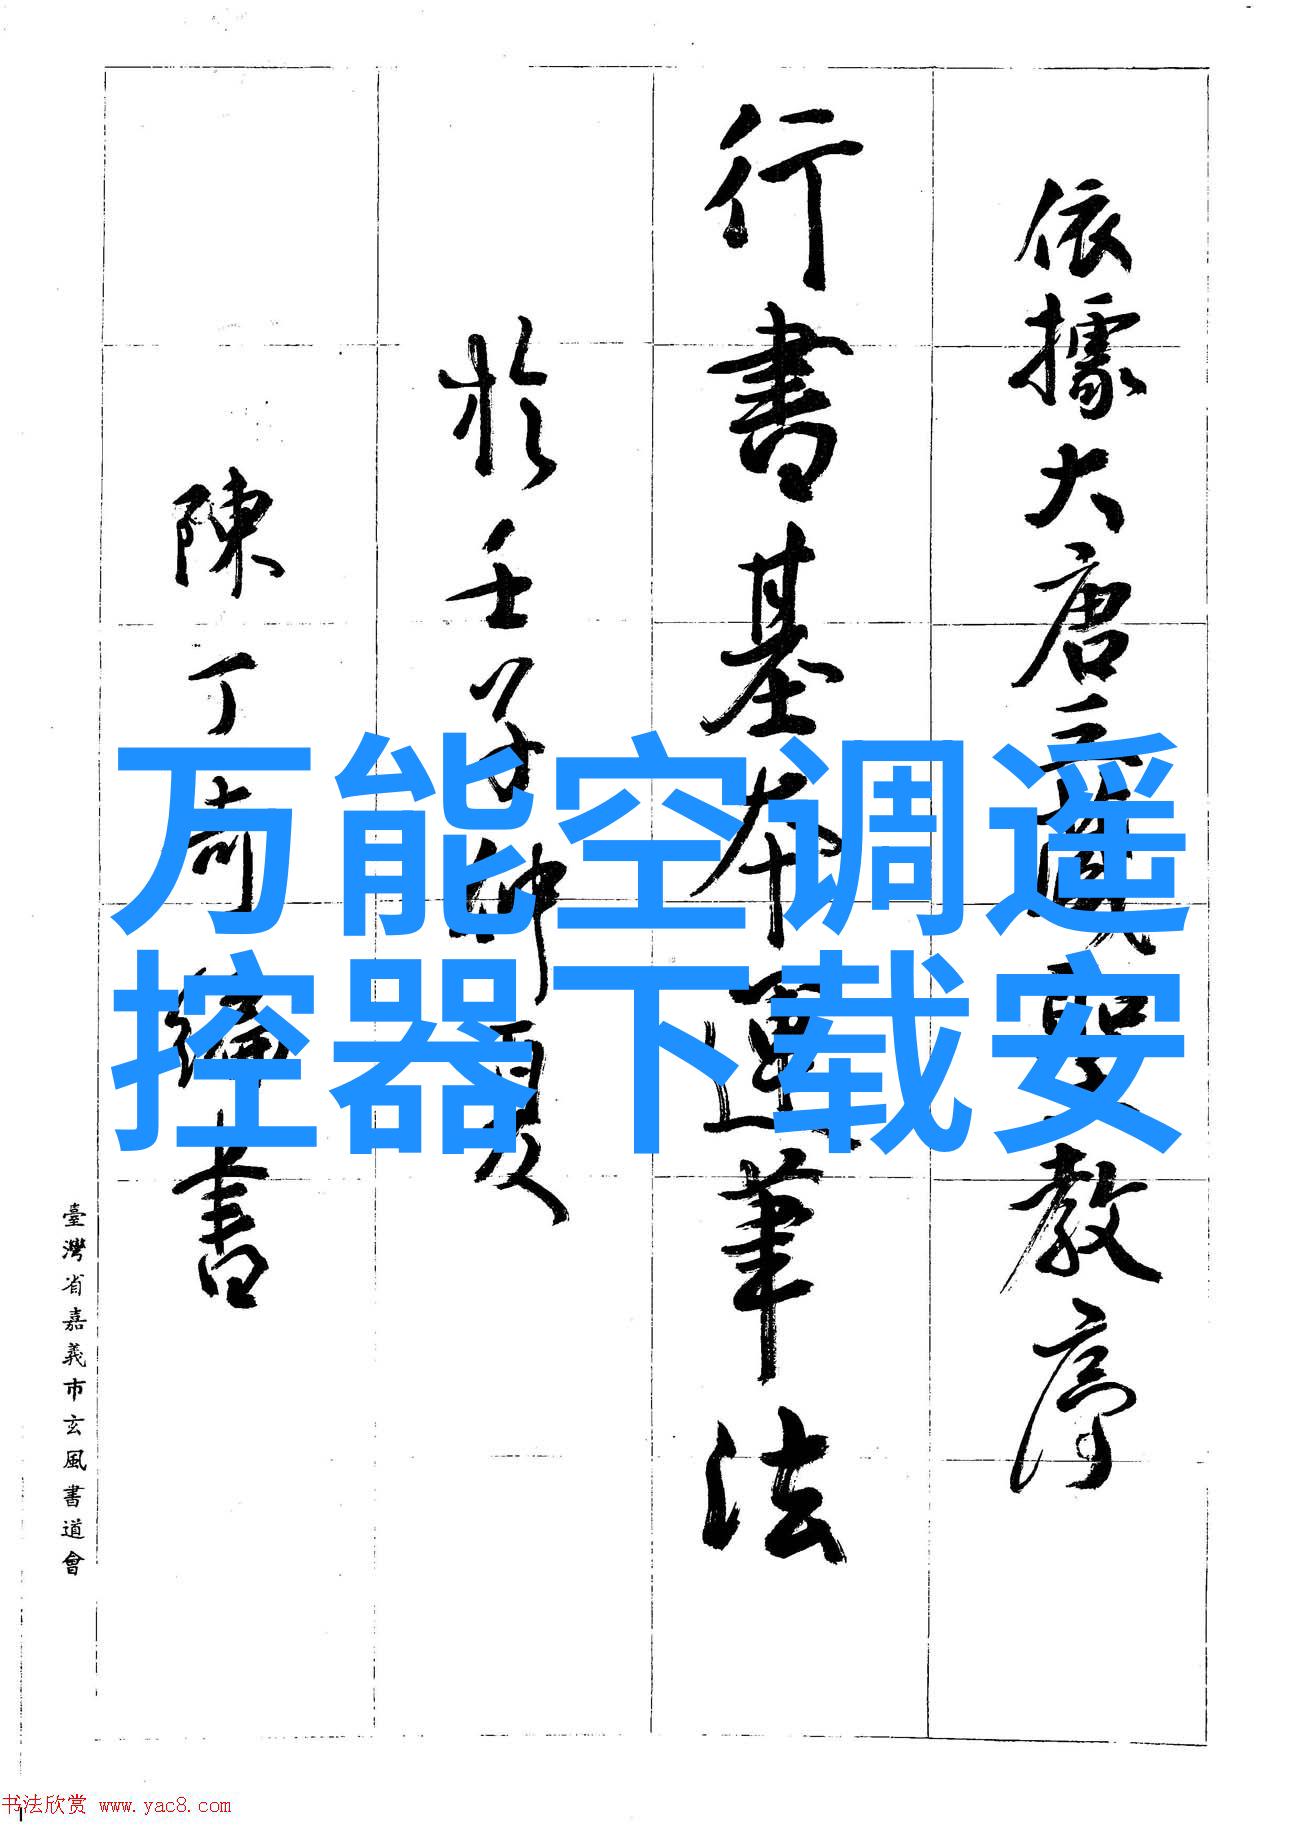 依據大唐三藏聖教序
行書基本運筆法
於壬子仲夏
陳丁奇編書
臺灣省嘉義市玄風書道會
万能空调遥
控器下载安
书法欣赏 www.yac8.com